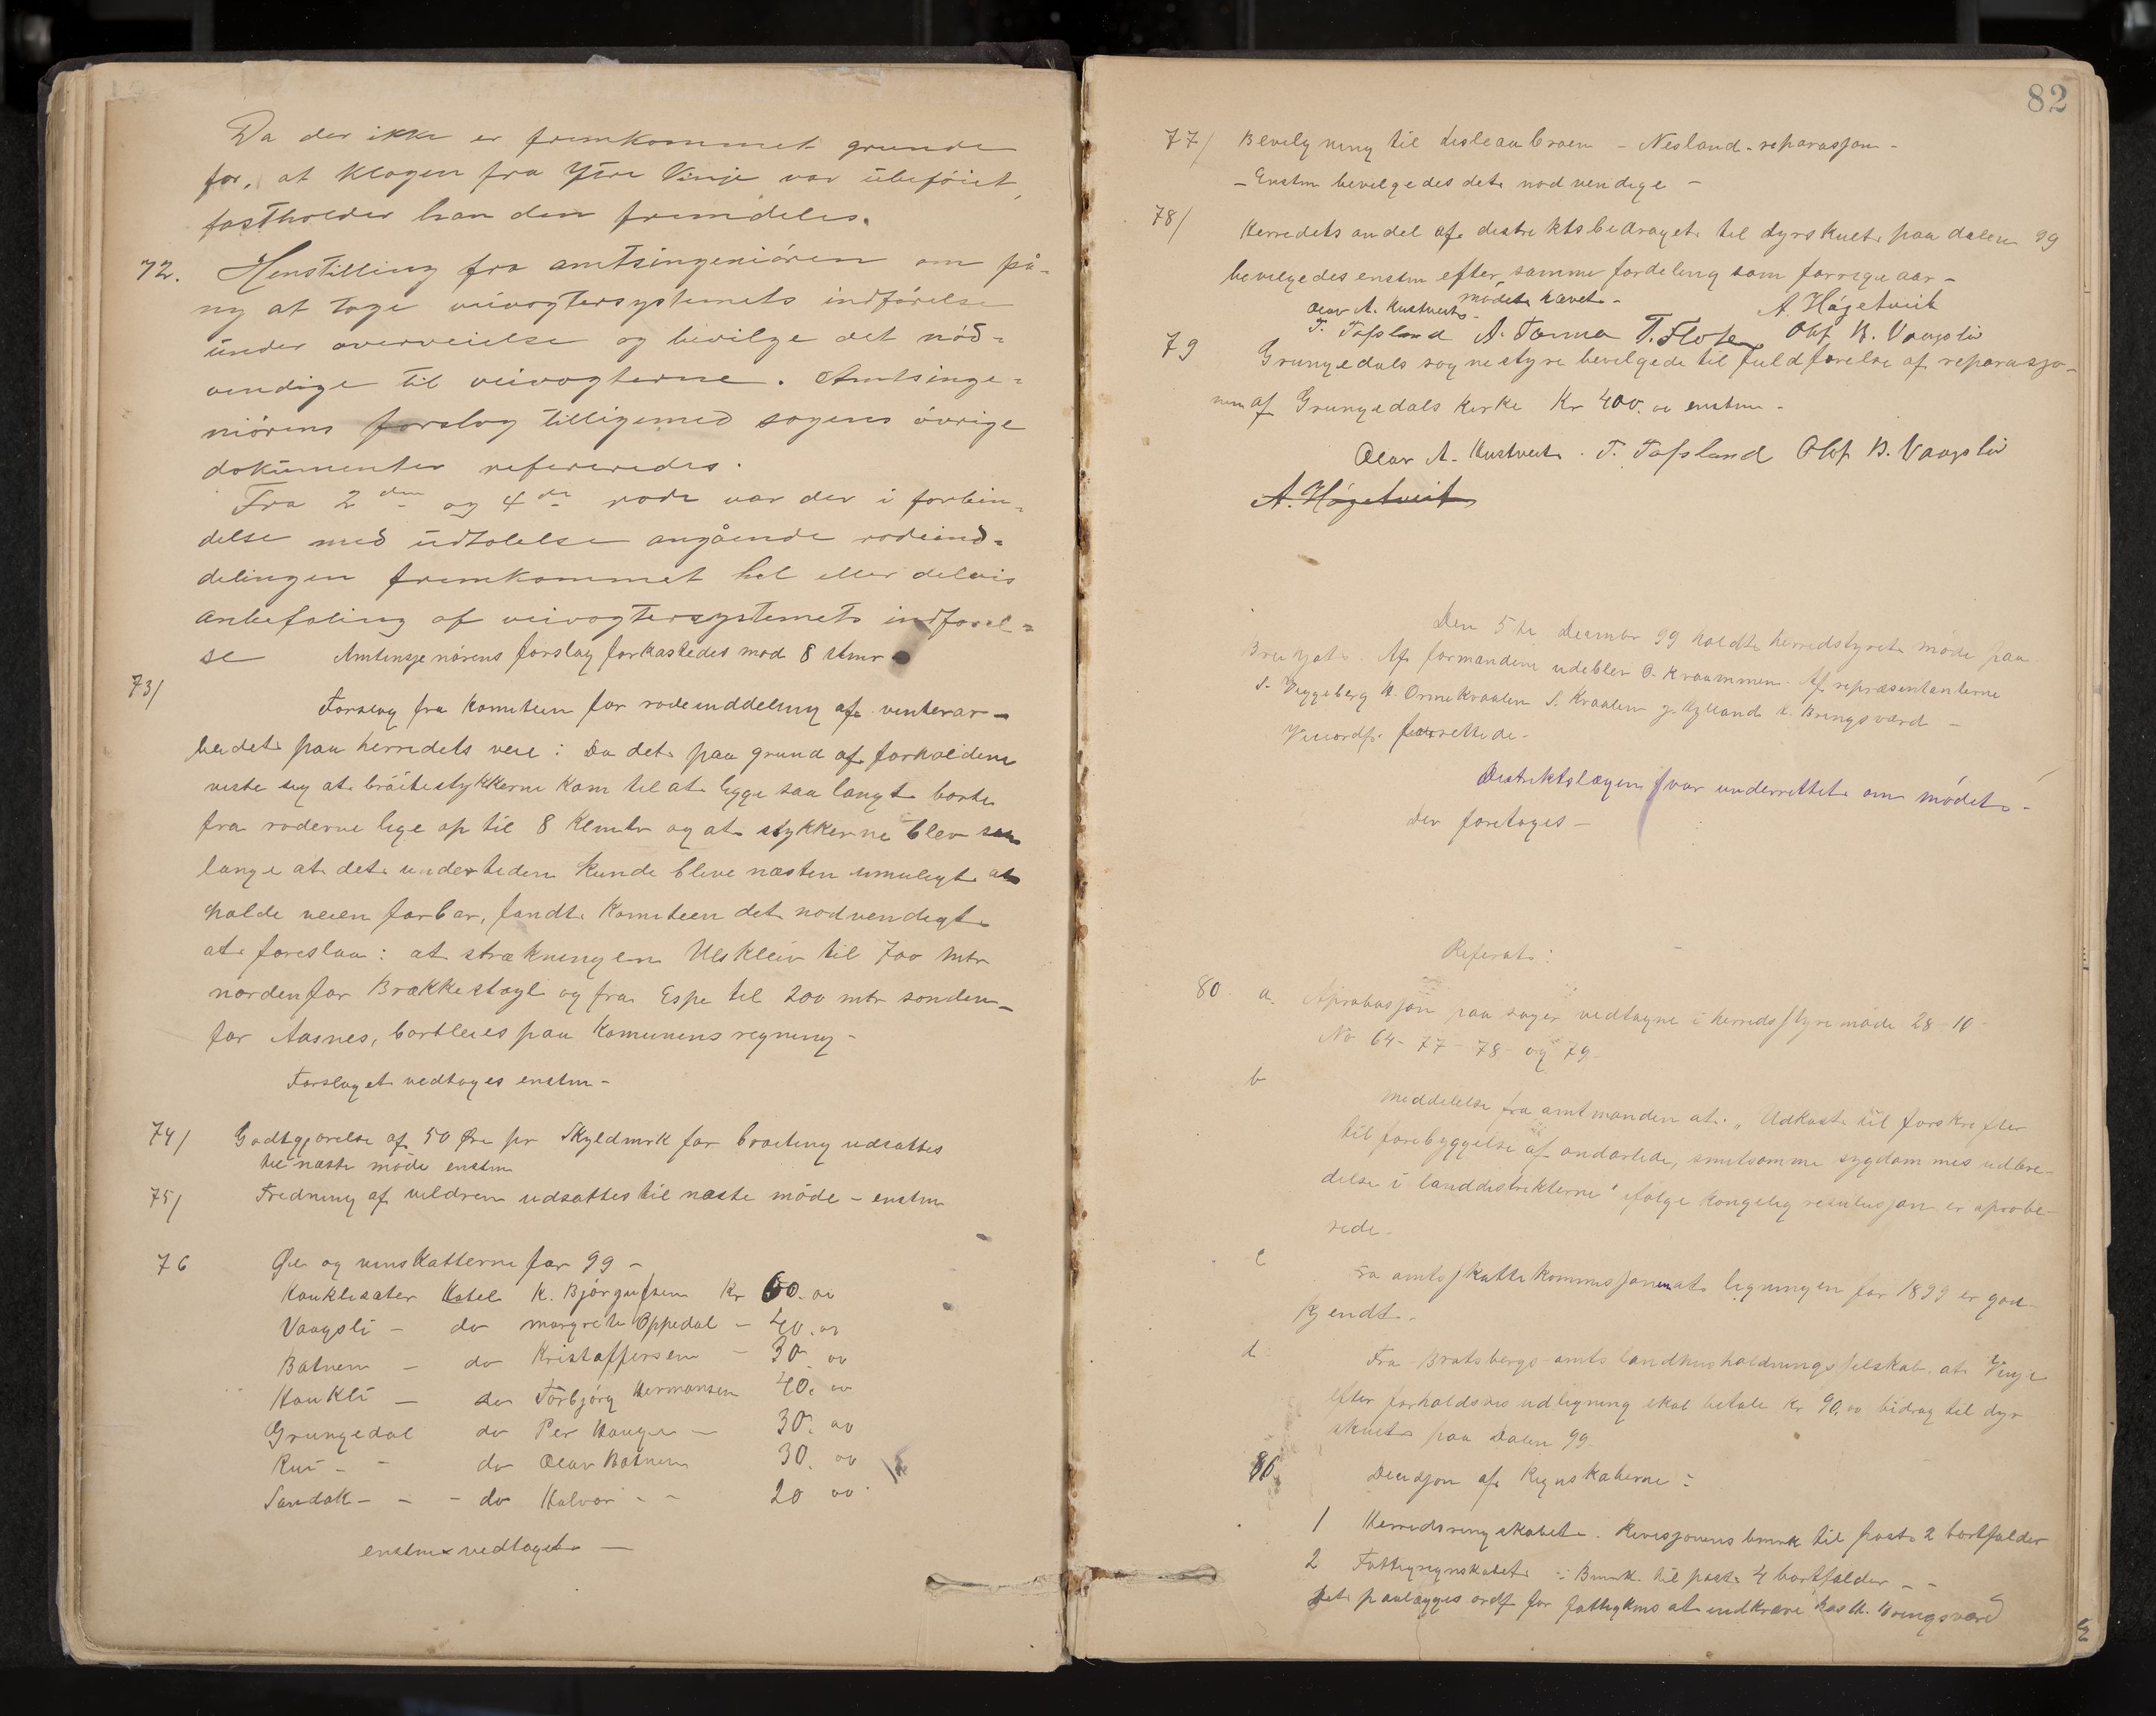 Da der ikke er fremkommet grunde
for, at klagen fra Ytre Vinje var übeföiet,
fastholder han den fremdeles.
72. Henstilling fra amtsingeniören om på-
ny at tage veivogtersystemets indförelse
ünder overveielse og bevilge det nöd=
vendige til veivogterne. Amtsinge=
niörens forslag tilligemed sagens övrige
dokümenter refereredes.
Fra 2den og 4de rode var der i forbin=
delse med üdtalelse angående rodeind=
delingen fremkommet hel eller delvis
anbefaling af veivogtersystemets indförel=
se Amtinsjenörens forslag forkastedes mod 8 stmr
73/
Forslag fra komiteen for rodeinddeling af vinterar-
beidet paa herredets veie: Da det paa grund af forholdene
viste sig at bröitestykkerne kom til at ligge saa langt borte
fra roderne lige op til 8 Klmtr og at stykkerne blev saa
lange at det undertiden kunde blive næsten umuligt at
holde veien farbar, fandt komiteen det nødvendigt
at foreslaa: at strækningen Ulskleiv til 700 mtr
nordenfor Brækkestøyl og fra Espe til 200 mtr sønden-
for Aasnes, bortleies paa komunens regning -
Forslaget vedtoges enstm -
74/ Godtgjørelse af 50 Øre pr Skyldmrk for brøiting udsattes
til næste møde enstm
75/ Fredning af vildren udsattes til næste möde - enstm
76 Øl og vinskatterne for 99 -
Haukliseter Hotel K. Bjørgufsen Kr 60. 00
Vaagsli - do Margrete Oppedal - 40. 00
Botnen - do Kristoffersen - 30. 00
Haukli - do Torbjörg Hermansen 40. 00
Grungedal do Per Haugen - 30. 00
Rui - - do Olav Botnen 30. 00
Sandok - - - do Halvor - - 20 00
enstm vedtaget -
82
77/ Bevilgning til Lisleaabroen - Nesland - reparasjon -
- Enstm bevilgedes det nødvendige -
78/
Herredets andel af distriktsbidraget til dyrskuet paa dalen 99
bevilgedes enstm efter samme fordeling som forrige aar -
mödet hævet -
Olav A. Kustveit A. Högetveit
T. Tofsland A. Torma T. Floten Olof B. Vaagsli
79 Grungedals sognestyre bevilgede til fuldførelse af reparasjo-
nen af Grungedals kirke Kr 400. 00 enstm -
Olav A. Kustveit. T. Tofsland Olof B. Vaagsli
A. Högetveit
Den 5te Desember 99 holdt herredstyret møde paa
Af formændene udeblev O. Kraammen. Af repræsentanterne
S. Veggeberg H. Ormekraaken S. Kraaken J. Hylland K. Bringsværd -
Viceordf. frarettede -
Distriktslægen var underrettet om mödet -
Der foretoges -
Referat:
80. a. Aprobasjon paa sager vedtagne i herredsstyremöde 28-10-
No 64 - 77 - 78 og 79 -
b
Meddelelse fra amtmanden at: „Udkast til forskrifter
til forebyggelse af ondartede, smitsomme sygdommes udbre-
delse i landdistrikterne" ifølge kongelig resolusjon er aprobe-
rede -
c
Fra amtsskattekommisjonen at ligningen for 1899 er god-
kjendt.
d.
Fra Bratsbergs-amts landhusholdningsselskab. at Vinje
efter forholdsvis udligning skal betale Kr 90. 00 bidrag til dyr-
skuet paa Dalen 99
86 Decisjon af Regnskaberne:
1 Herredsregnskabet. Revisjonens bmrk til post 2 bortfalder
2 Fattigregnskabet: Bmrk. til post 4 bortfalder - -
Det paalægges ordf for fattigkms at indkræve hos H. Bringsværd